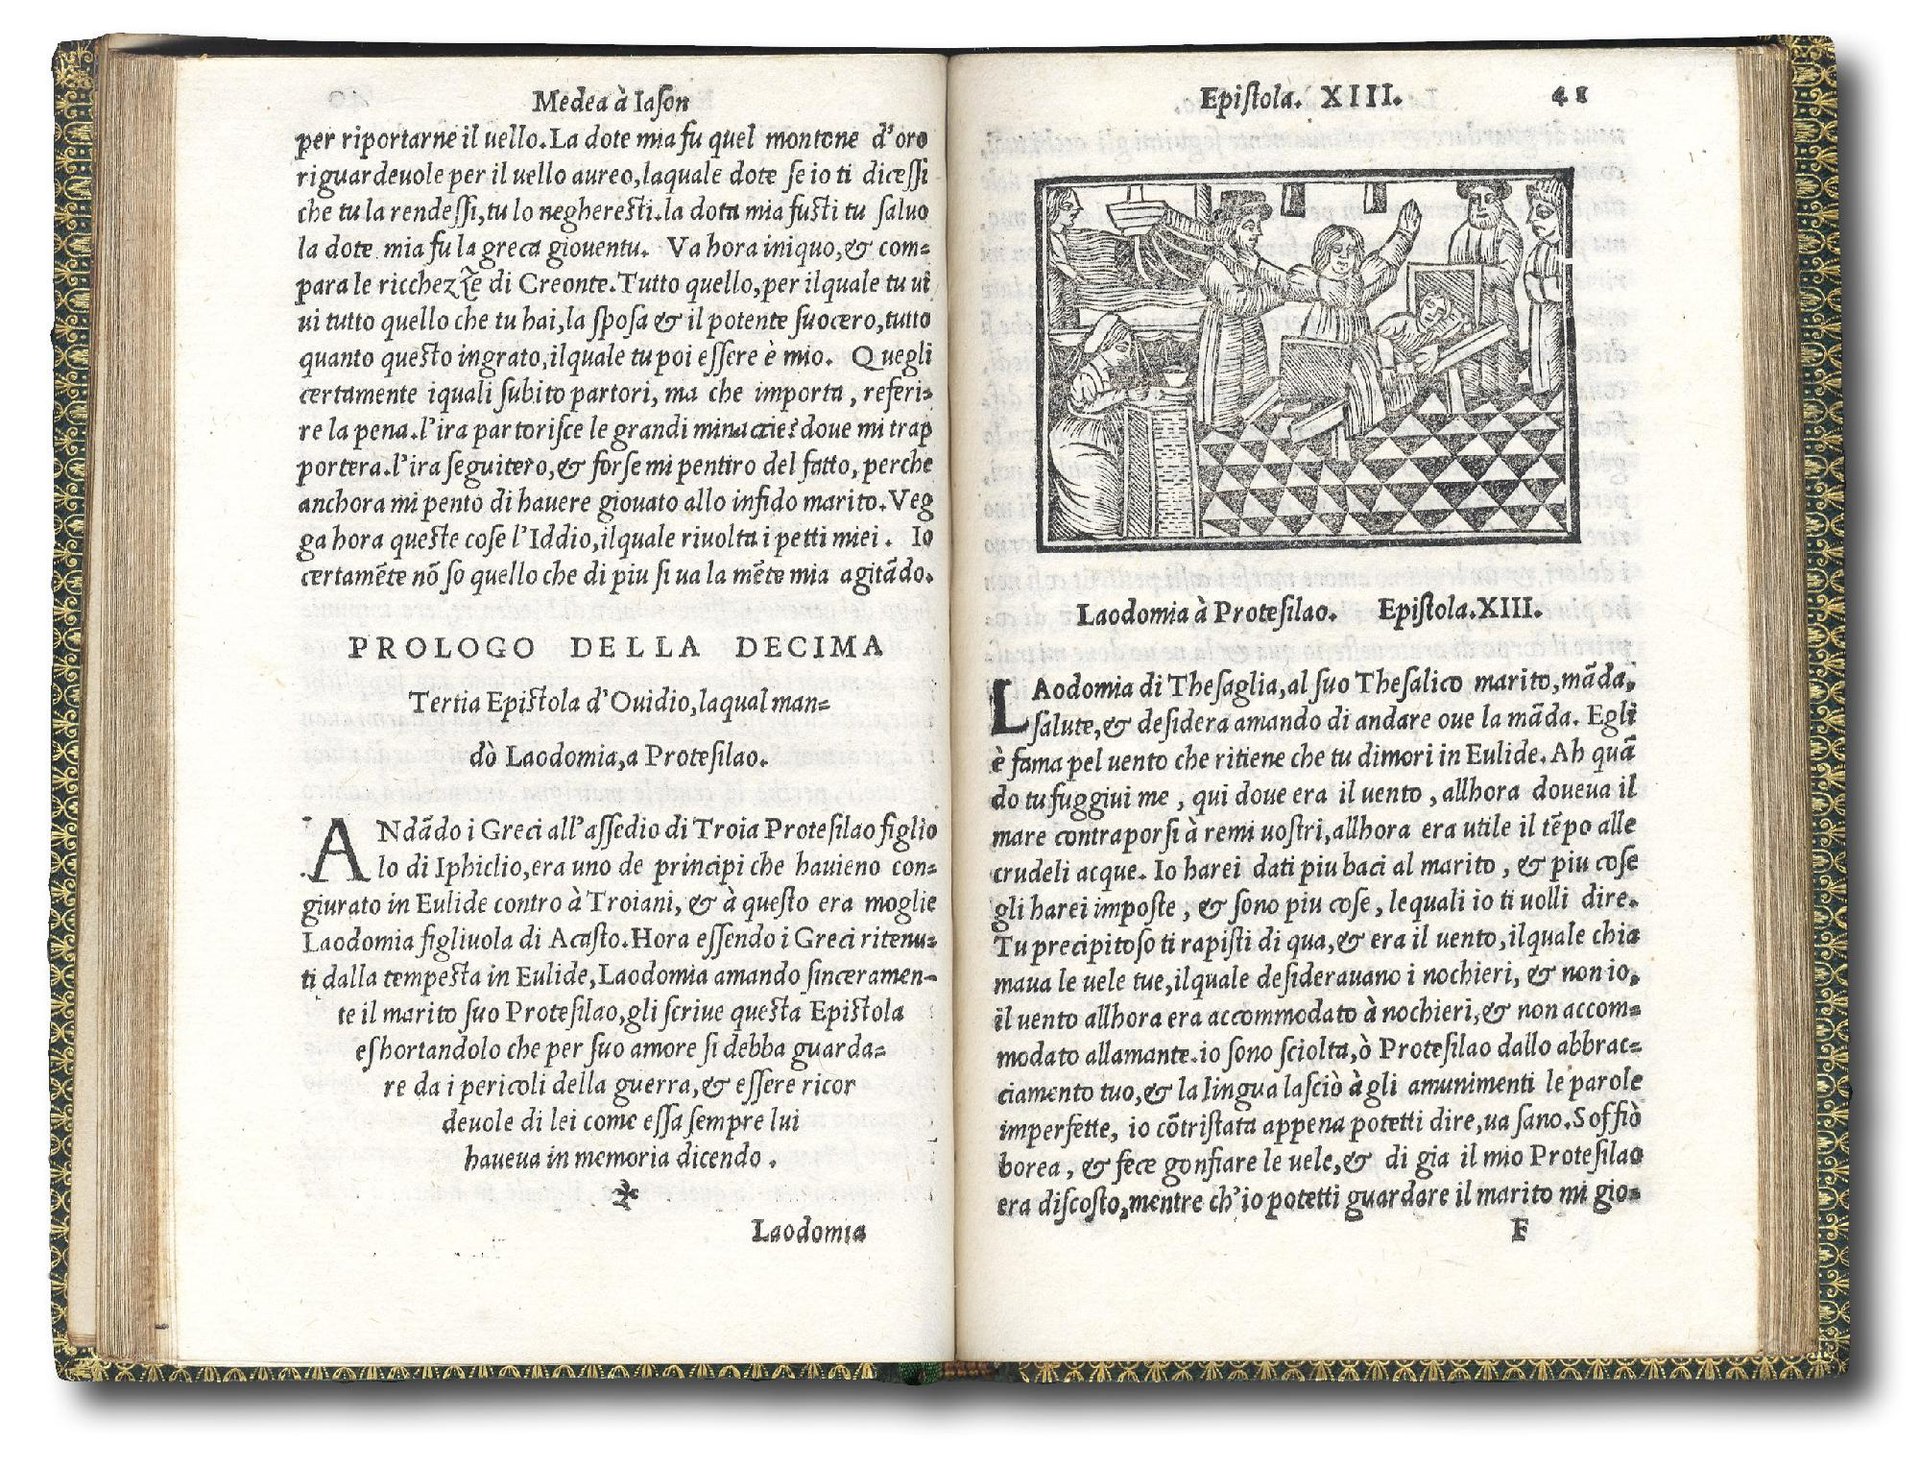 Medea à Iaſon
per riportarne il uello. La dote mia fu quel montone d'oro
riguardeuole per il uello aureo, laquale dote ſe io ti diceſſi
che tu la rendeſſi, tu lo neghereſti. la dota mia fuſti tu ſaluo
la dote mia fu la greca giouentu. Va hora iniquo, & com=
para le ricchezze di Creonte. Tutto quello, per ilquale tu ui
ui tutto quello che tu hai, la ſpoſa & il potente ſuocero, tutto
quanto queſto ingrato, ilquale tu poi eſſere è mio. Quegli
certamente iquali ſubito partori, ma che importa, referi=
re la pena. l'ira partoriſce le grandi minaccie: doue mi trap
portera. l'ira ſeguitero, & forſe mi pentiro del fatto, perche
anchora mi pento di hauere giouato allo infido marito. Veg
ga hora queſte coſe l'Iddio, ilquale riuolta i petti miei. Io
certamẽte nõ ſo quello che di piu ſi ua la mẽte mia agitãdo.
PROLOGO DELLA DECIMA
Tertia Epiſtola d'Ouidio, laqual man=
dò Laodomia, a Proteſilao.
ANdãdo i Greci all'aſſedio di Troia Proteſilao figlio
lo di Iphiclio, era uno de principi che hauieno con=
giurato in Eulide contro à Troiani, & à queſto era moglie
Laodomia figliuola di Acaſto. Hora eſſendo i Greci ritenu=
ti dalla tempeſta in Eulide, Laodomia amando ſinceramen=
te il marito ſuo Proteſilao, gli ſcriue queſta Epiſtola
eſhortandolo che per ſuo amore ſi debba guarda=
re da i pericoli della guerra, & eſſere ricor
deuole di lei come eſſa ſempre lui
haueua in memoria dicendo.
Laodomia
Epiſtola. XIII. 41
Laodomia à Proteſilao. Epiſtola. XIII.
LAodomia di Theſaglia, al ſuo Theſalico marito, mãda,
ſalute, & deſidera amando di andare oue la mãda. Egli
è fama pel uento che ritiene che tu dimori in Eulide. Ah quã
do tu fuggiui me, qui doue era il uento, allhora doueua il
mare contraporſi à remi uoſtri, allhora era utile il tẽpo alle
crudeli acque. Io harei dati piu baci al marito, & piu coſe
gli harei impoſte, & ſono piu coſe, lequali io ti uolli dire.
Tu precipitoſo ti rapiſti di qua, & era il uento, ilquale chia
maua le uele tue, ilquale deſiderauano i nochieri, & non io,
il uento allhora era accommodato à nochieri, & non accom=
modato allamante. io ſono ſciolta, ò Proteſilao dallo abbrac=
ciamento tuo, & la lingua laſciò à gli amunimenti le parole
imperfette, io cõtriſtata appena potetti dire, ua ſano. Soffiò
borea, & fece gonfiare le uele, & di gia il mio Proteſilao
era diſcoſto, mentre ch'io potetti guardare il marito mi gio=
F